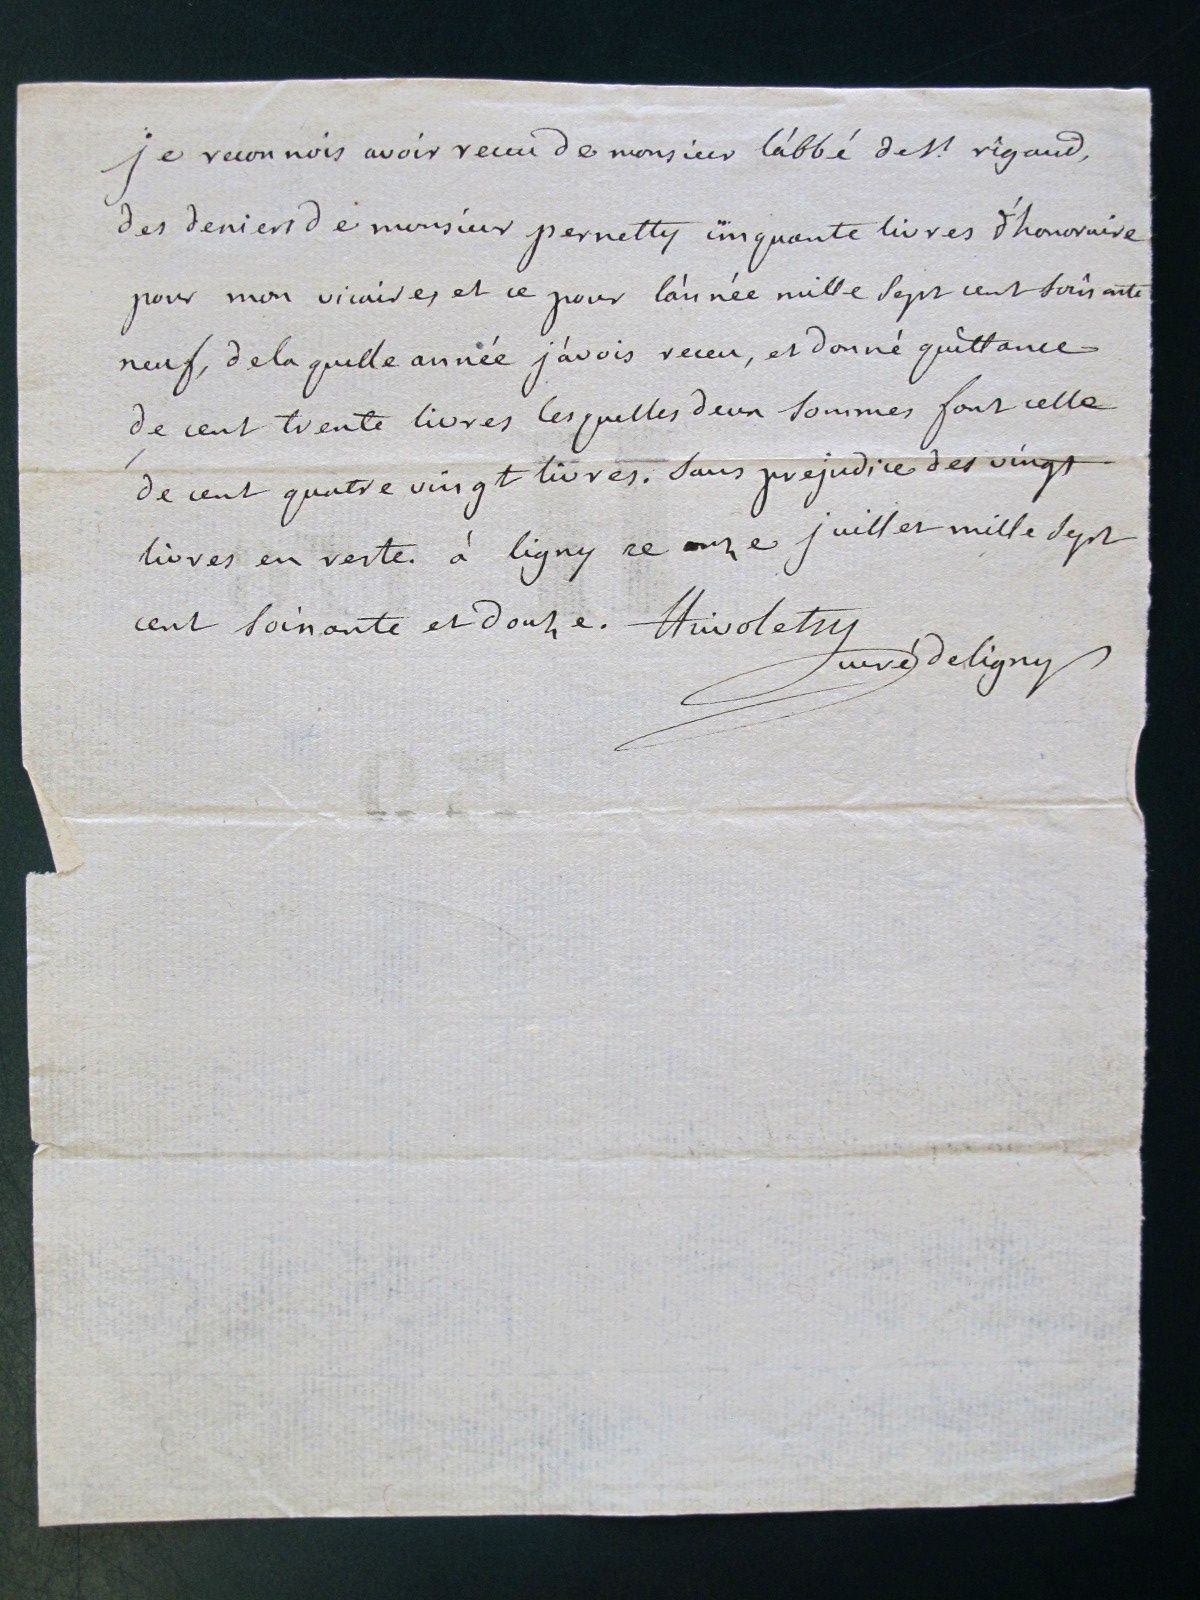 je reconnois avoir receu de monsieur l'abbé de st. rigaud,
des deniers de monsieur pernetty cinquante livres d'honoraire
pour mon vicaires et ce pour l'année mille sept cent soixante
neuf, de la quelle année j'avois receu, et donné quittance
de cent trente livres lesquelles deux sommes font celle
de cent quatre vingt livres. sans prejudice des vingt
livres en reste. à ligny ce onze juillet mille sept
cent soixante et douze.
curé de ligny